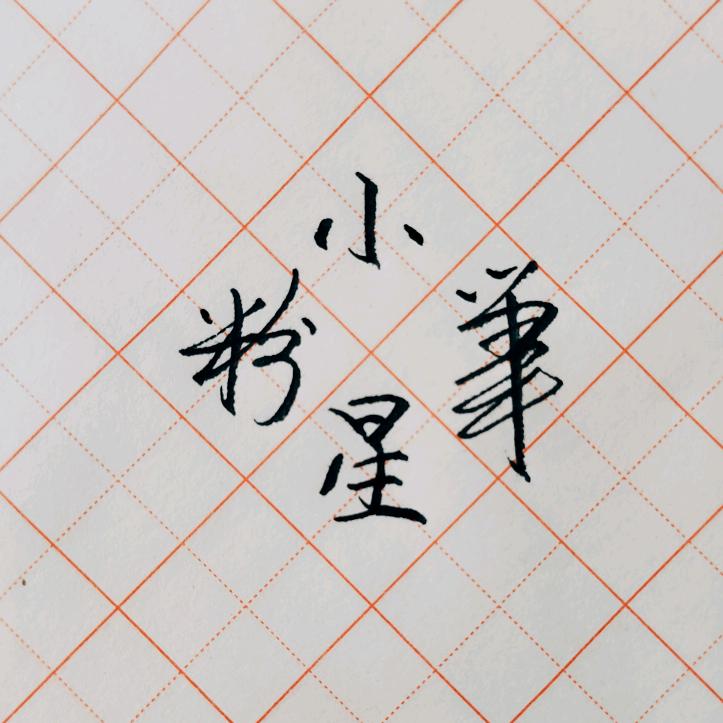 小
粉 筆
星